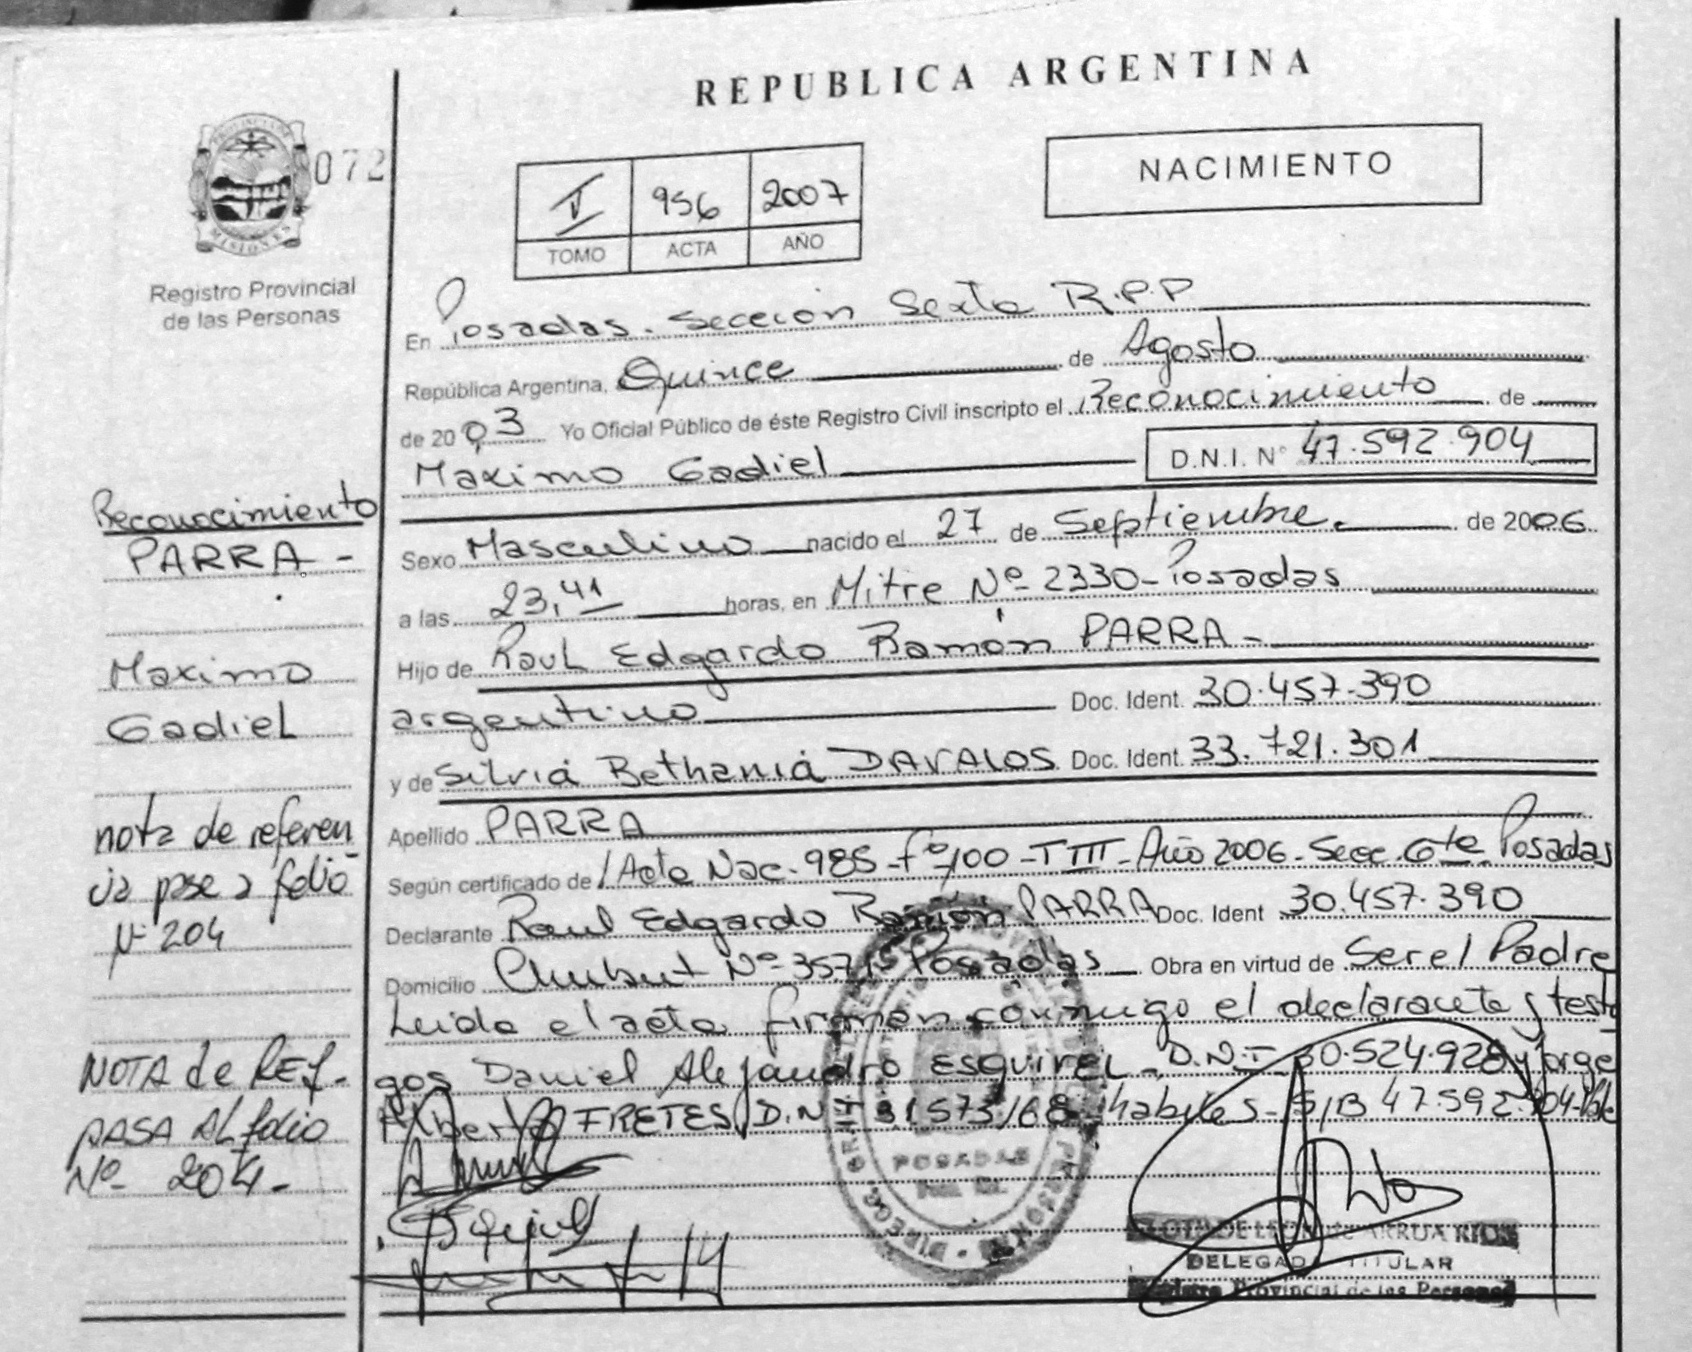 REPUBLICA ARGENTINA
PROVINCIA DE
MISIONES
072
Registro Provincial
de las Personas
I 956 2007
TOMO ACTA AÑO
NACIMIENTO
En Posadas. Sección Sexta R.P.P
República Argentina, Quince de Agosto
de 20 03 Yo Oficial Público de éste Registro Civil inscripto el Reconocimiento de
Maximo Gadiel D.N.I. N° 47.592.904
Sexo Masculino nacido el 27 de Septiembre. de 2006
a las 23,41 horas, en Mitre Nº 2330-Posadas
Hijo de Raul Edgardo Ramón PARRA-
argentino Doc. Ident. 30.457.390
y de Silvia Bethania DAVALOS Doc. Ident. 33.721.301
Apellido PARRA
Según certificado de Acta Nac. 985-fº100-TIII-Año 2006-Secc. 6ta Posadas
Declarante Raul Edgardo Ramón PARRA Doc. Ident 30.457.390
Domicilio Chubut Nº 3571- Posadas Obra en virtud de Ser el Padre
Leida el acta firman conmigo el declarante y testi
gos Daniel Alejandro ESQUIVEL D.N.I 30.524.928 y Jorge
Alberto FRETES, D.N.I 31.573.168 habiles- S/B 47.592.904-
Reconocimiento
PARRA-
Maximo
Gadiel
nota de referen
cia pase a folio
Nº 204
NOTA de REF.
PASA AL folio
Nº 204-
POSADAS
DE LEON de ARRUA RIOS
DELEGADA TITULAR
Registro Provincial de las Personas